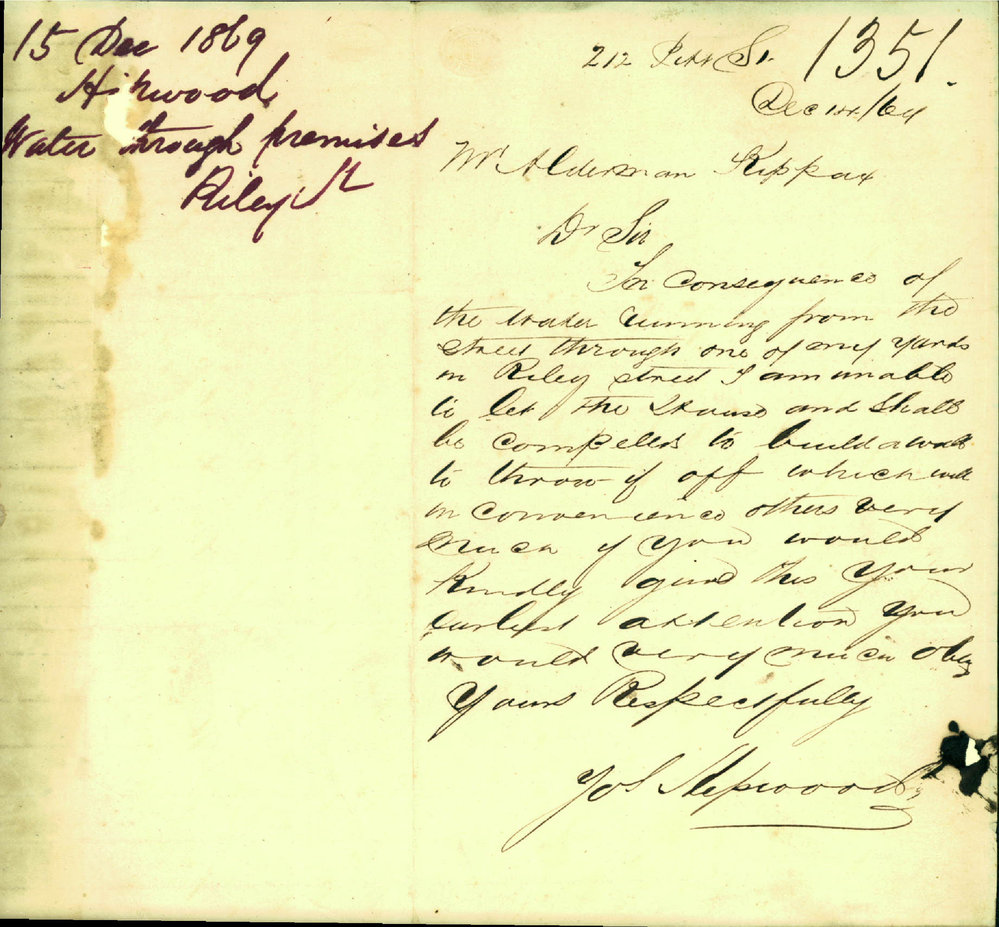 15 Dec 1869
Hipwood
Water through premises
Riley St
1351.
212 Pitt St.
Dec 14/69
Mr Alderman Kippax
Dr Sir
In Consequence of
the water running from the
street through one of my Yards
in Riley street I am unable
to let the House and shall
be Compelled to build a wall
to throw it off which will
in convenience others very
much if you would
Kindly give this Your
earliest attention You
would very much oblig
Yours Respectfully
Jos Hipwood